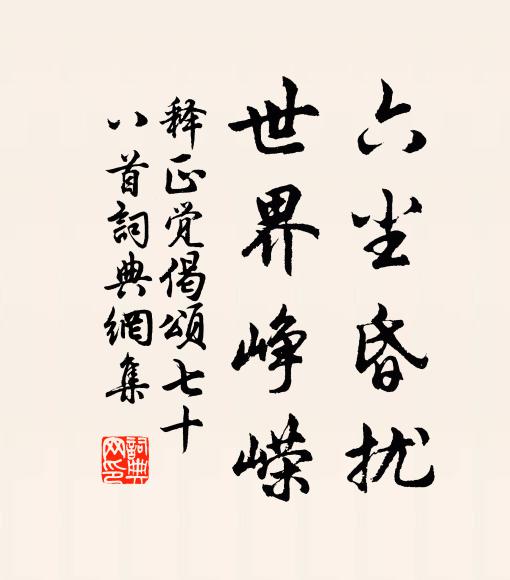 六尘昏扰
世界峥嵘
释正觉偈颂七十
八首詞典網集
詞典
网印